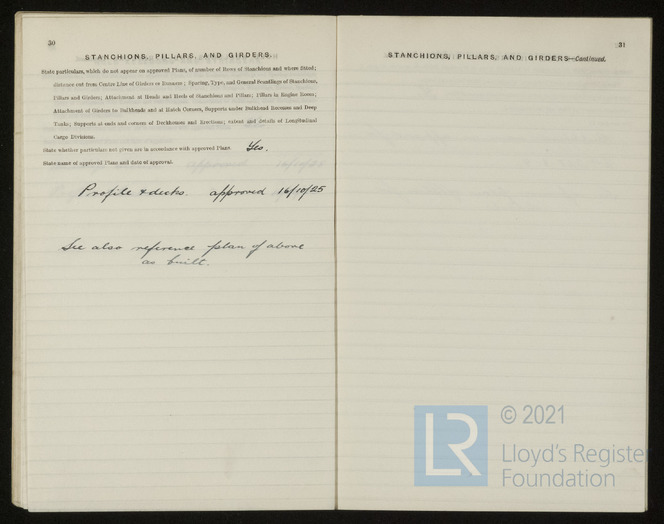 30
STANCHIONS, PILLARS, AND GIRDERS.
State particulars, which do not appear on approved Plans, of number of Rows of Stanchions and where fitted;
distance out from Centre Line of Girders or Bossages; Spacing, Type, and General Scantlings of Stanchions,
Pillars and Girders; Attachment at Heads and Heels of Stanchions and Pillars; Pillars in Engine Room;
Attachment of Girders to Bulkheads and at Hatch Corners, Supports under Bulkhead Recesses and Deep
Tanks; Supports at ends and corners of Deckhouses and Erections; extent and details of Longitudinal
Cargo Divisions.
State whether particulars not given are in accordance with approved Plans. Yes.
State name of approved Plans and date of approval.
Profile & decks. approved 16/10/25
See also reference plan of above
as built.
31
STANCHIONS, PILLARS, AND GIRDERS—Continued.
LR
© 2021
Lloyd's Register
Foundation